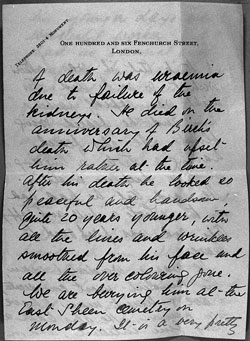 TELEPHONE, 2670 & MONUMENT.
ONE HUNDRED AND SIX FENCHURCH STREET,
LONDON.
of death was uraemia
due to failure of the
kidneys. He died on the
anniversary of Birch's
death which had upset
him rather at the time.
After his death he looked so
peaceful and handsome,
quite 20 years younger, with
all the lines and wrinkles
smoothed from his face and
all the over colouring gone.
We are burying him at the
East Sheen cemetery on
Monday. It is a very pretty